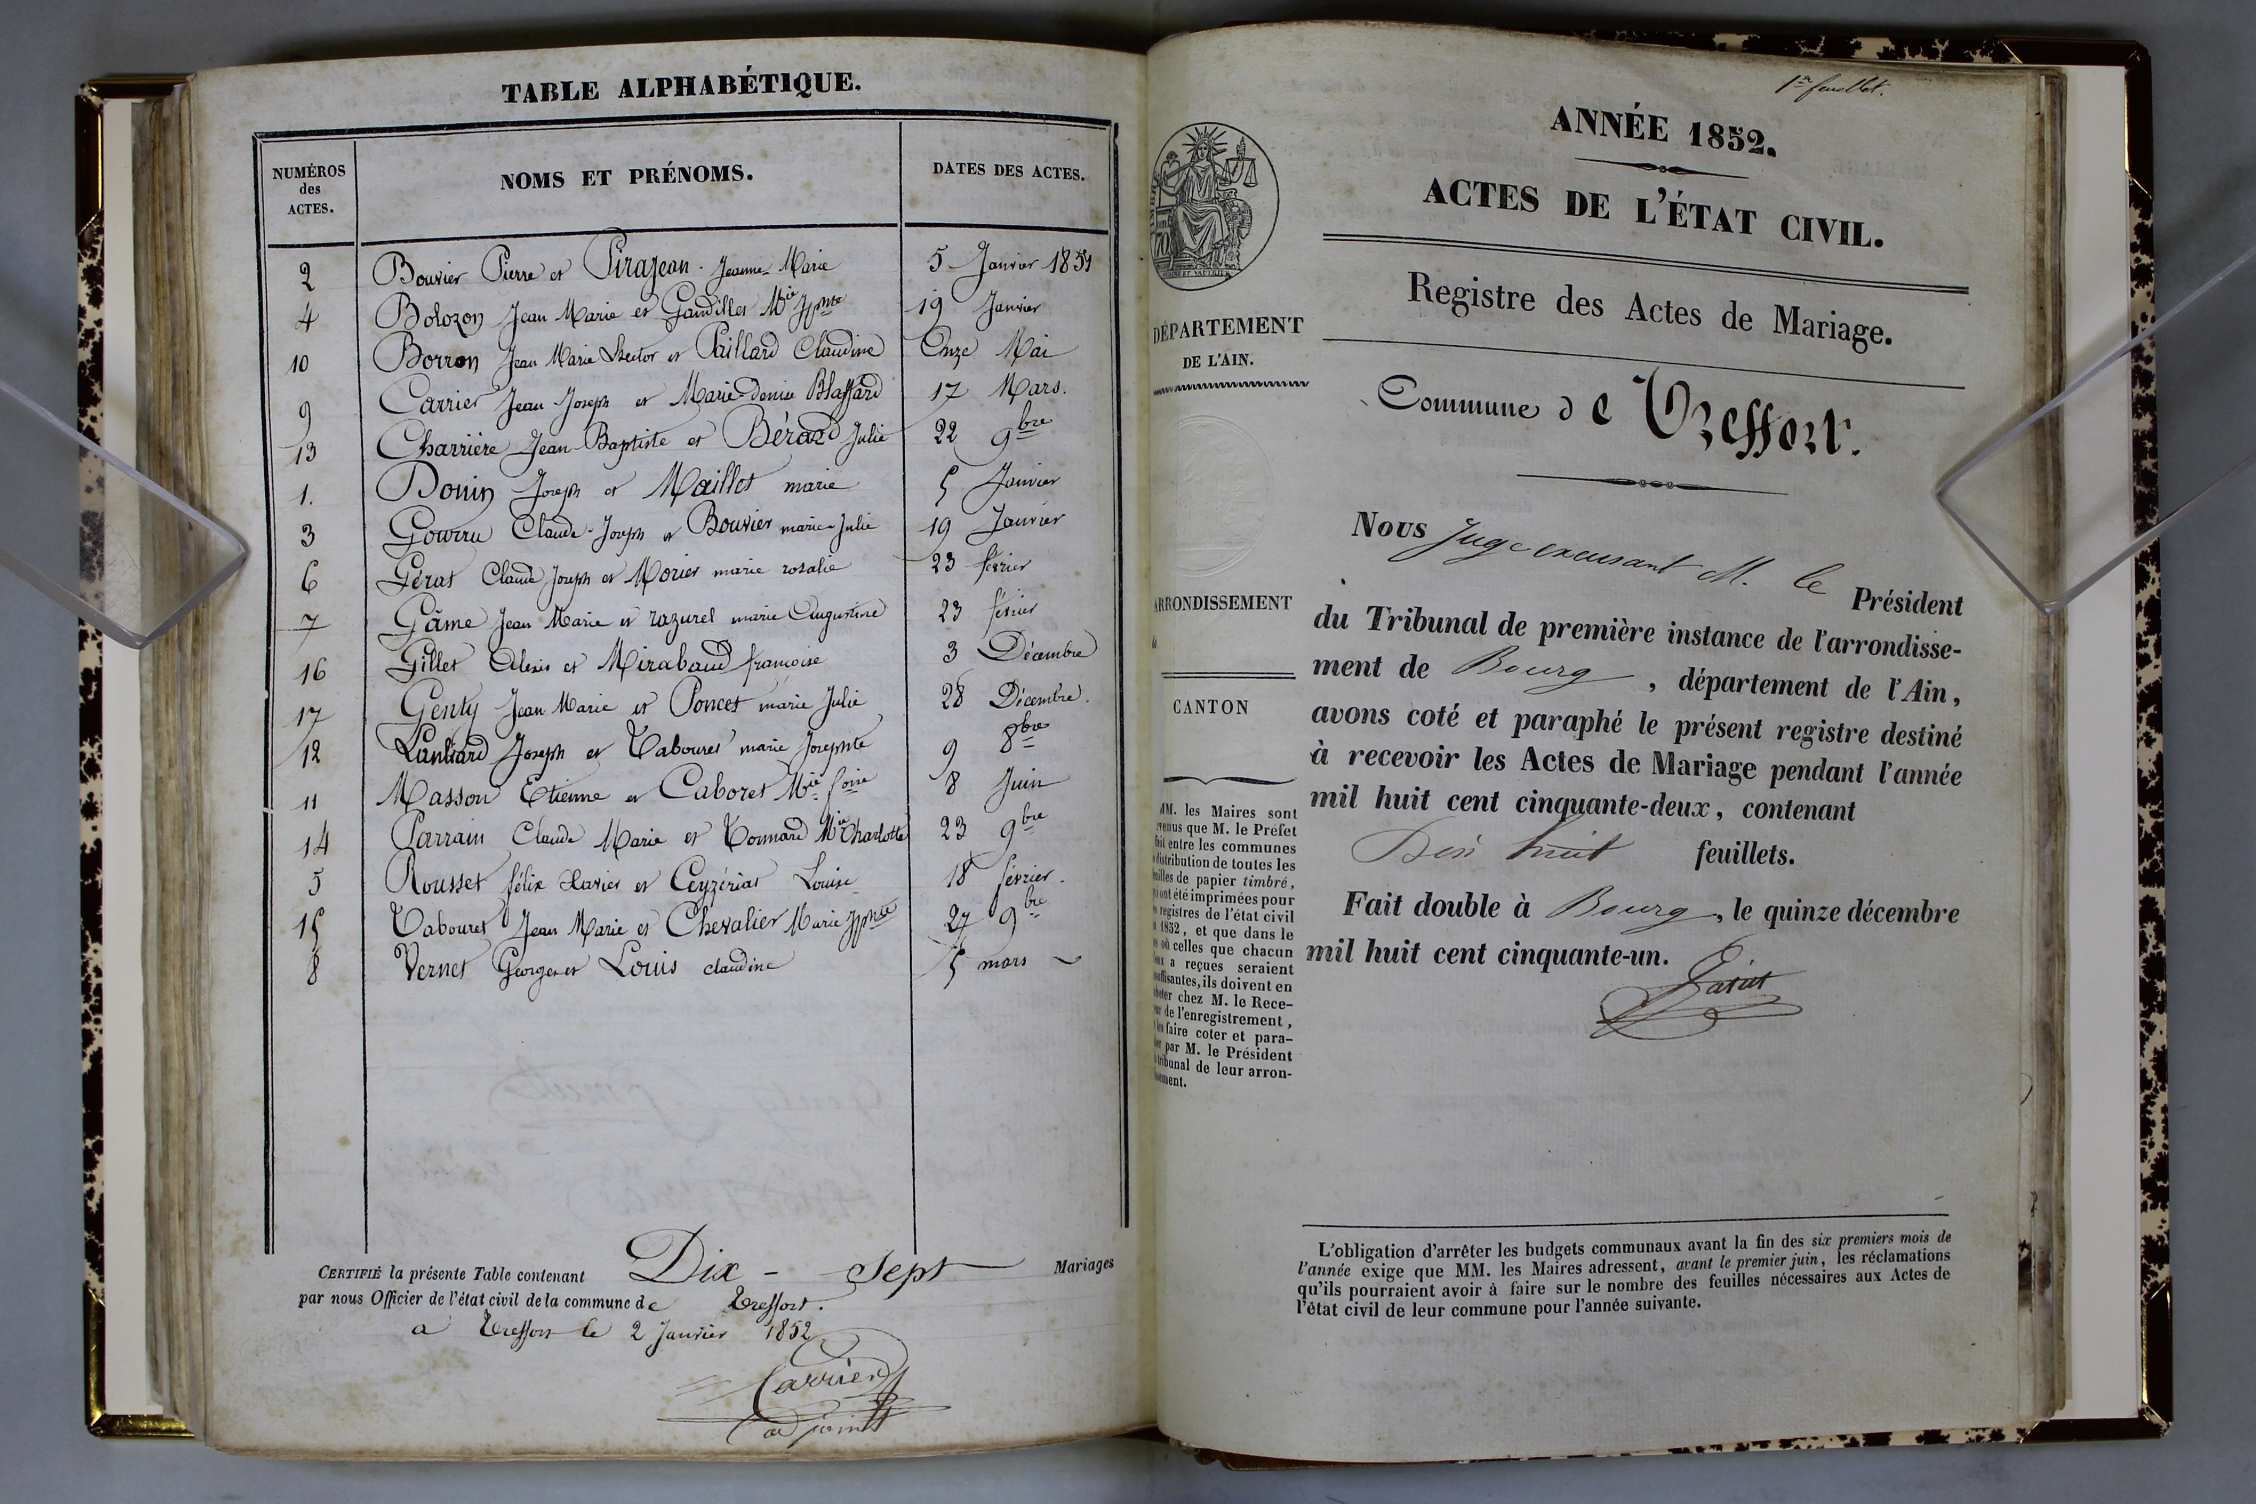 TABLE ALPHABÉTIQUE.
NUMÉROS des ACTES. NOMS ET PRÉNOMS. DATES DES ACTES.
2 Bouvier Pierre et Pirajean Jeanne-Marie 5 Janvier 1851
4 Bolozon Jean Marie et Gandillet Mie Jphte 19 Janvier
10 Borron Jean Marie Hector et Paillard Claudine Onze Mai
9 Carrier Jean-Joseph et Marie-Denise Blaffard 17 Mars.
13 Charrière Jean Baptiste et Bérard Julie 22 9bre
1. Donin Joseph et Maillet marie 5 Janvier
3 Claude-Joseph et Bouvier marie-Julie 19 Janvier
6 Gérat Claude Joseph et Morier marie rosalie 23 février
7 Gâme Jean Marie et razurel marie Augustine 23 février
16 Gillet Alexis et Mirabaud françoise 3 Décembre
17 Genty Jean Marie et Poncet marie Julie 28 Décembre.
12 Joseph et Tabouret marie Josephte 9 8bre
11 Masson Etienne et Caboret Mie 8 Juin
14 Parrain Claude Marie et Tonnard Mie Charlotte 23 9bre
5 Rousset félix Xavier et Ceyzériat Louise 18 février.
15 Tabouret Jean Marie et Chevalier Marie Jphte 27 9bre
8 Vernet Georges et Louis claudine 5 mars
CERTIFIÉ la présente Table contenant Dix-Sept Mariages
par nous Officier de l'état civil de la commune de Treffort.
a Treffort le 2 Janvier 1852
Carrier
adjoint
1er feuillet.
ANNÉE 1852.
ACTES DE L'ÉTAT CIVIL.
Registre des Actes de Mariage.
DÉPARTEMENT
DE L'AIN.
Commune de Treffort.
ARRONDISSEMENT
CANTON
MM. les Maires sont
que M. le Préfet
fait entre les communes
distribution de toutes les
feuilles de papier timbré,
ont été imprimées pour
registres de l'état civil
1852, et que dans le
où celles que chacun
a reçues seraient
ils doivent en
chez M. le Rece-
de l'enregistrement,
faire coter et para-
par M. le Président
tribunal de leur arron-
Nous Juge excusant M. le Président
du Tribunal de première instance de l'arrondisse-
ment de Bourg, département de l'Ain,
avons coté et paraphé le présent registre destiné
à recevoir les Actes de Mariage pendant l'année
mil huit cent cinquante-deux, contenant
Dix huit feuillets.
Fait double à Bourg, le quinze décembre
mil huit cent cinquante-un.
L'obligation d'arrêter les budgets communaux avant la fin des six premiers mois de
l'année exige que MM. les Maires adressent, avant le premier juin, les réclamations
qu'ils pourraient avoir à faire sur le nombre des feuilles nécessaires aux Actes de
l'état civil de leur commune pour l'année suivante.